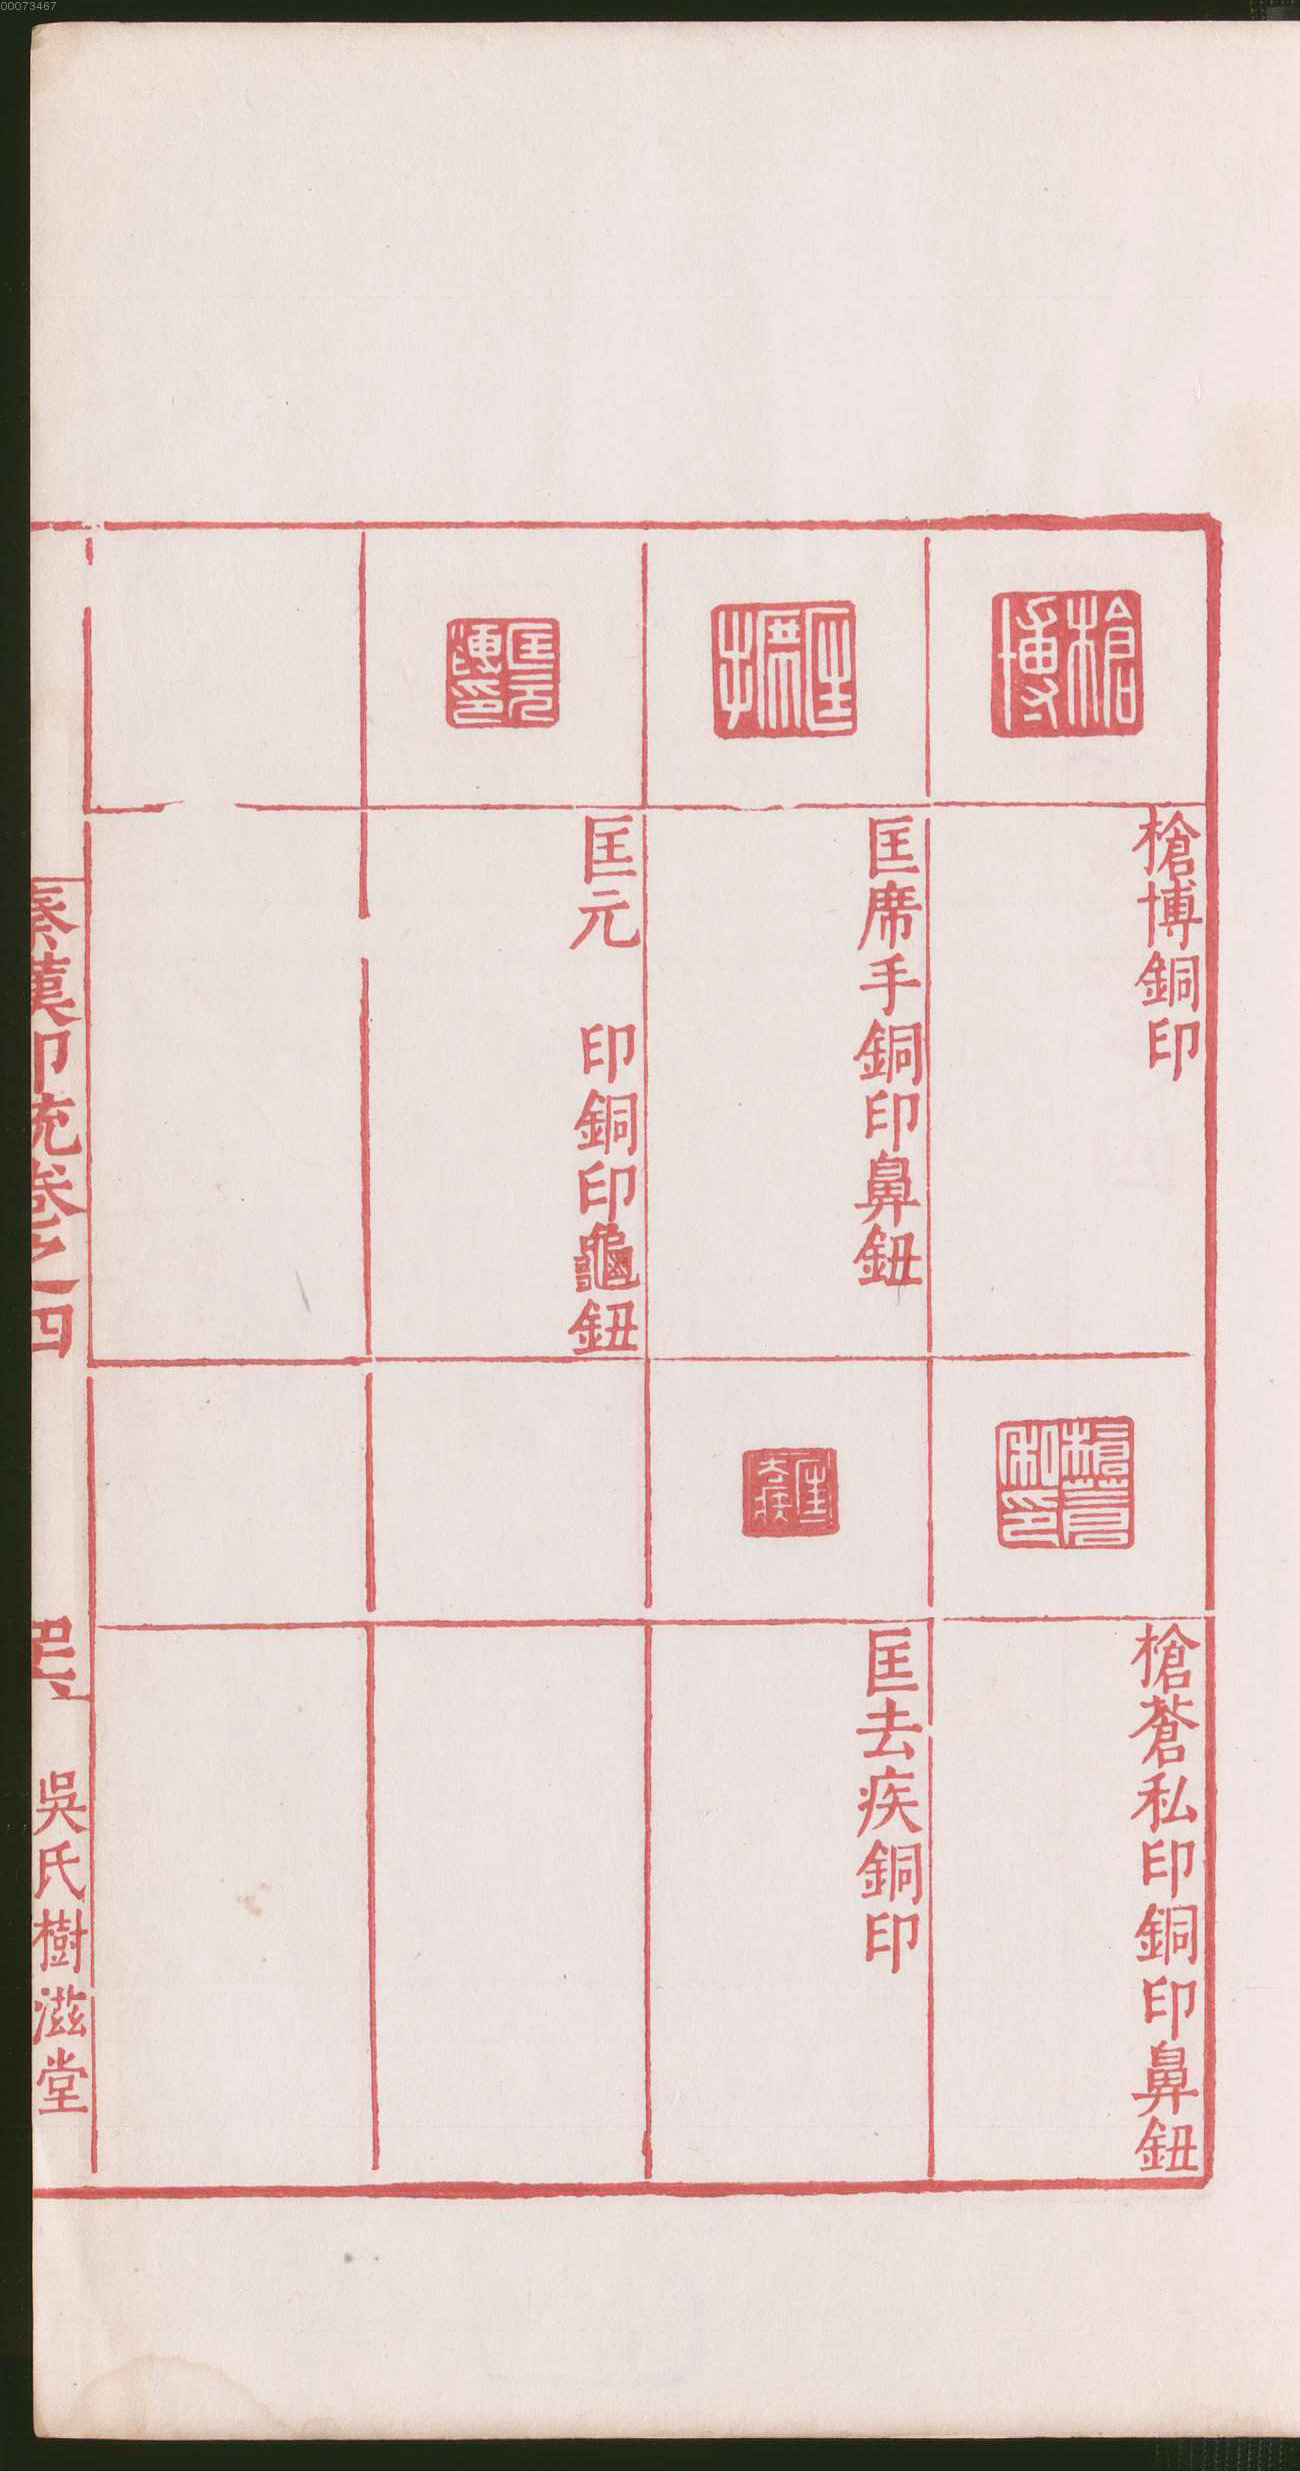 00073467
槍博
槍博銅印
槍蒼私印
槍蒼私印銅印鼻鈕
匡席手
匡席手銅印鼻鈕
匡去疾
匡去疾銅印
匡元印
匡元　印銅印龜鈕
秦漢印統卷之四
吳氏樹滋堂